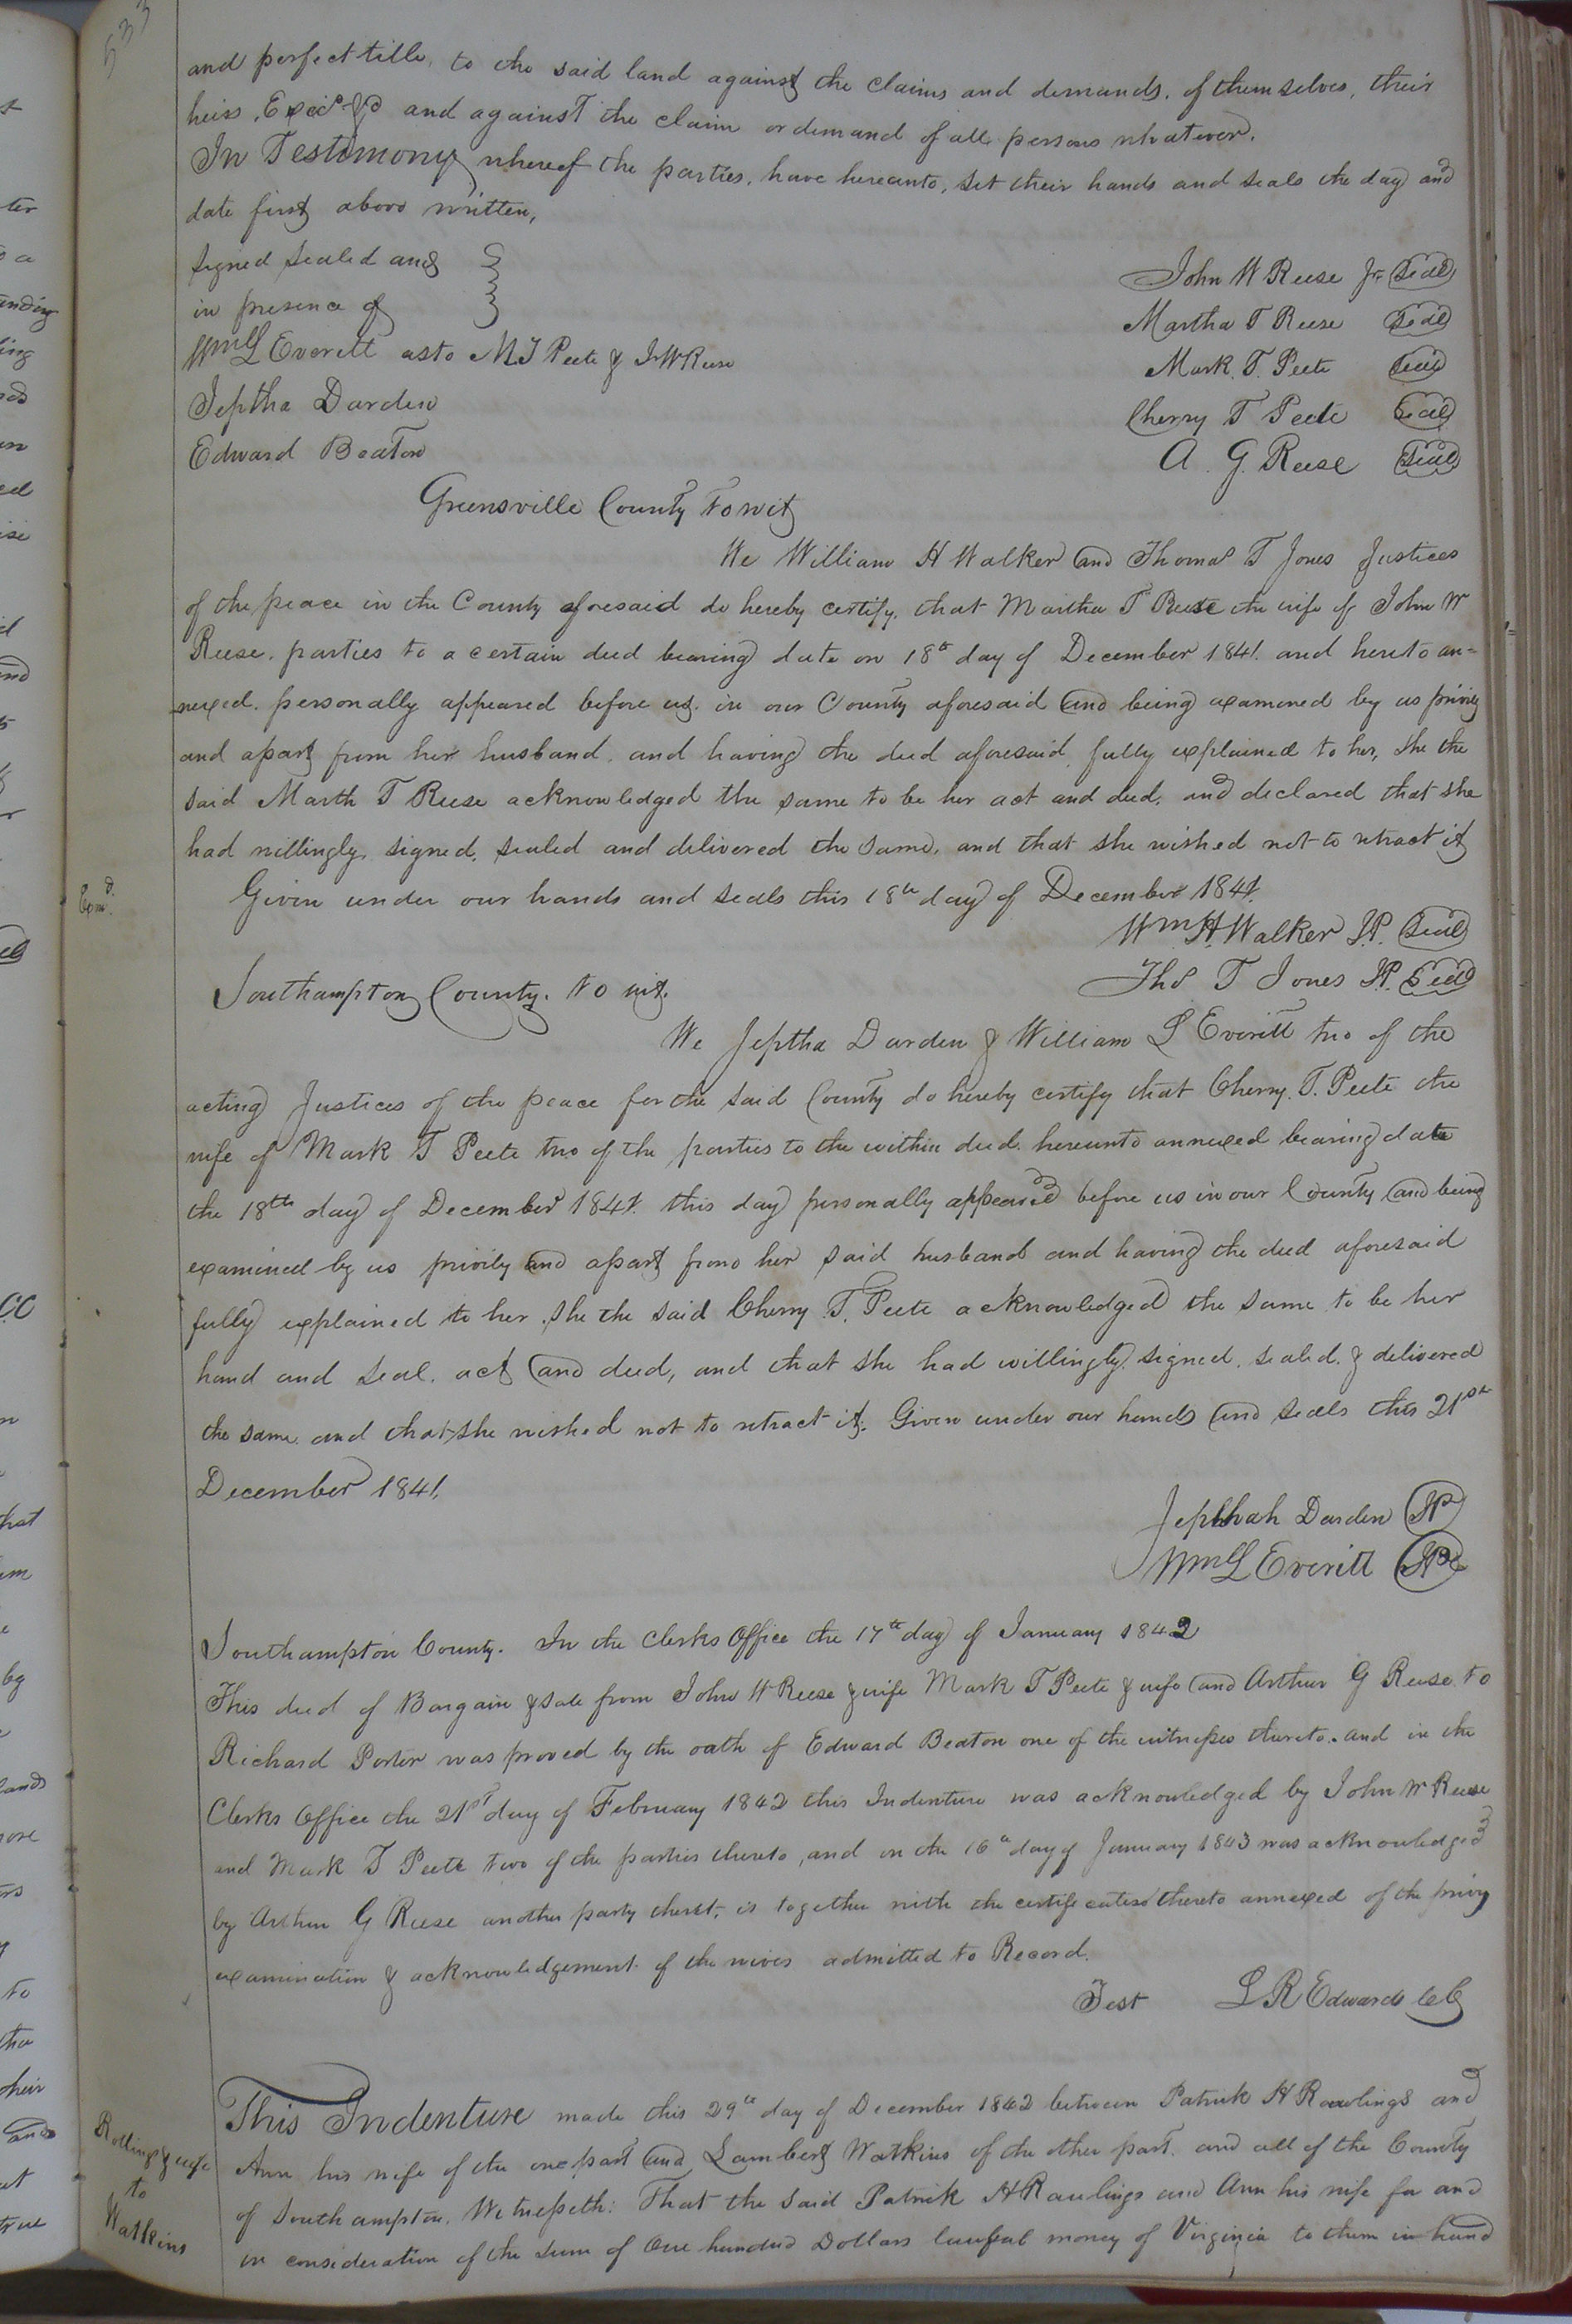 533
and perfect title, to the said land against the claims and demands, of themselves, their
heirs, Exec.rs &c and against the claim or demand of all persons whatever.
In Testimony whereof the parties, have hereunto, set their hands and seals the day and
date first above written,
Signed sealed and
in presence of
Wm L Everett as to M T Peete & J W Reese
Jeptha Darden
Edward Beaton
John W Reese Jr Seal
Martha T Reese Seal
Mark. T. Peete Seal
Cherry T Peete Seal
A. G. Reese Seal
Greensville County to wit
We William H Walker and Thomas T Jones Justices
of the peace in the County aforesaid do hereby certify, that Martha T Reese the wife of John W
Reese, parties to a certain deed bearing date on 18th day of December 1841. and hereto an=
nexed. personally appeared before us. in our County aforesaid and being examined by us privily
and apart from her husband, and having the deed aforesaid, fully explained to her, she the
said Marth T Reese acknowledged the same to be her act and deed, and declared that she
had willingly, signed, sealed and delivered the same, and that she wished not to retract it
Given under our hands and seals this 18th day of December 1841.
Wm H Walker J.P. Seal
Thos T Jones J.P. Seal
Southampton County. to wit.
We Jeptha Darden & William L Everitt two of the
acting Justices of the peace for the said County do hereby certify that Cherry. T. Peete the
wife of Mark T Peete two of the parties to the within deed hereunto annexed bearing date
the 18th day of December 1841. this day personally appeared before us in our County and being
examined by us privily and apart from her said husband and having the deed aforesaid
fully explained to her, she the said Cherry. T. Peete acknowledged the same to be her
hand and seal. act and deed, and that she had willingly, signed, sealed, & delivered
the same, and that she wished not to retract it. Given under our hands and seals this 21st
December 1841.
Jephthah Darden JP
Wm L Everitt JP
Southampton County. In the Clerks Office the 17th day of January 1842
This deed of Bargain & Sale from John W Reese & wife Mark T Peete & wife and Arthur G Reese to
Richard Porter was proved by the oath of Edward Beaton one of the witnesses thereto. and in the
Clerks Office the 21st day of February 1842 this Indenture was acknowledged by John W Reese
and Mark T Peete two of the parties thereto, and on the 16th day of January 1843 was acknowledged
by Arthur G Reese another party thereto, is together with the certificates thereto annexed of the privy
examination & acknowledgement of the wives admitted to Record.
Test L R Edwards CC
Rollings & wife
to
Watkins
This Indenture made this 29th day of December 1842 between Patrick H Rawlings and
Ann his wife of the one part and Lambert Watkins of the other part. and all of the County
of Southampton, Witnesseth: That the said Patrick H Rawlings and Ann his wife for and
in consideration of the sum of One hundred Dollars lawful money of Virginia to them in hand